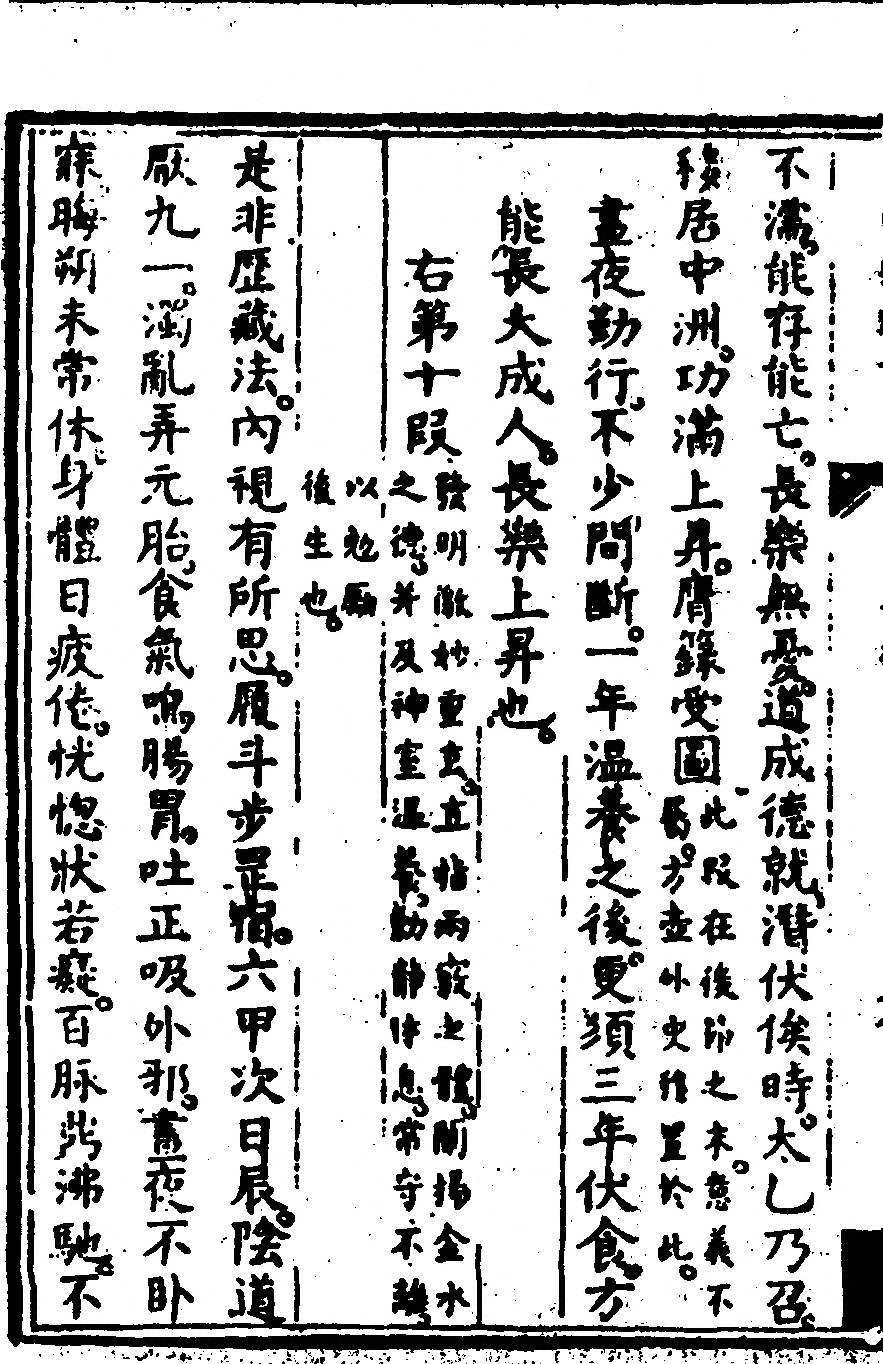 不濡能存能亡長樂無憂道成德就潛伏俟時太乙乃召
移居中洲功滿上昇膺籙受圖
此段在後節之末意義不
屬方壺外史移置於此
晝夜勤行不少間斷一年温養之後更須三年伏食方
能長大成人長樂上昇也
右第十段
發明微妙重玄直指兩竅之體闡揚金水
之德并及神室温養動靜休息常守不離
以勉勵
後生也
是非歷藏法內視有所思履斗步罡宿六甲次日辰陰道
厭九一濁亂弄元胎食氣鳴腸胃吐正吸外邪晝夜不卧
寐晦朔未常休身體日疲倦恍惚狀若癡百脉鼎沸馳不